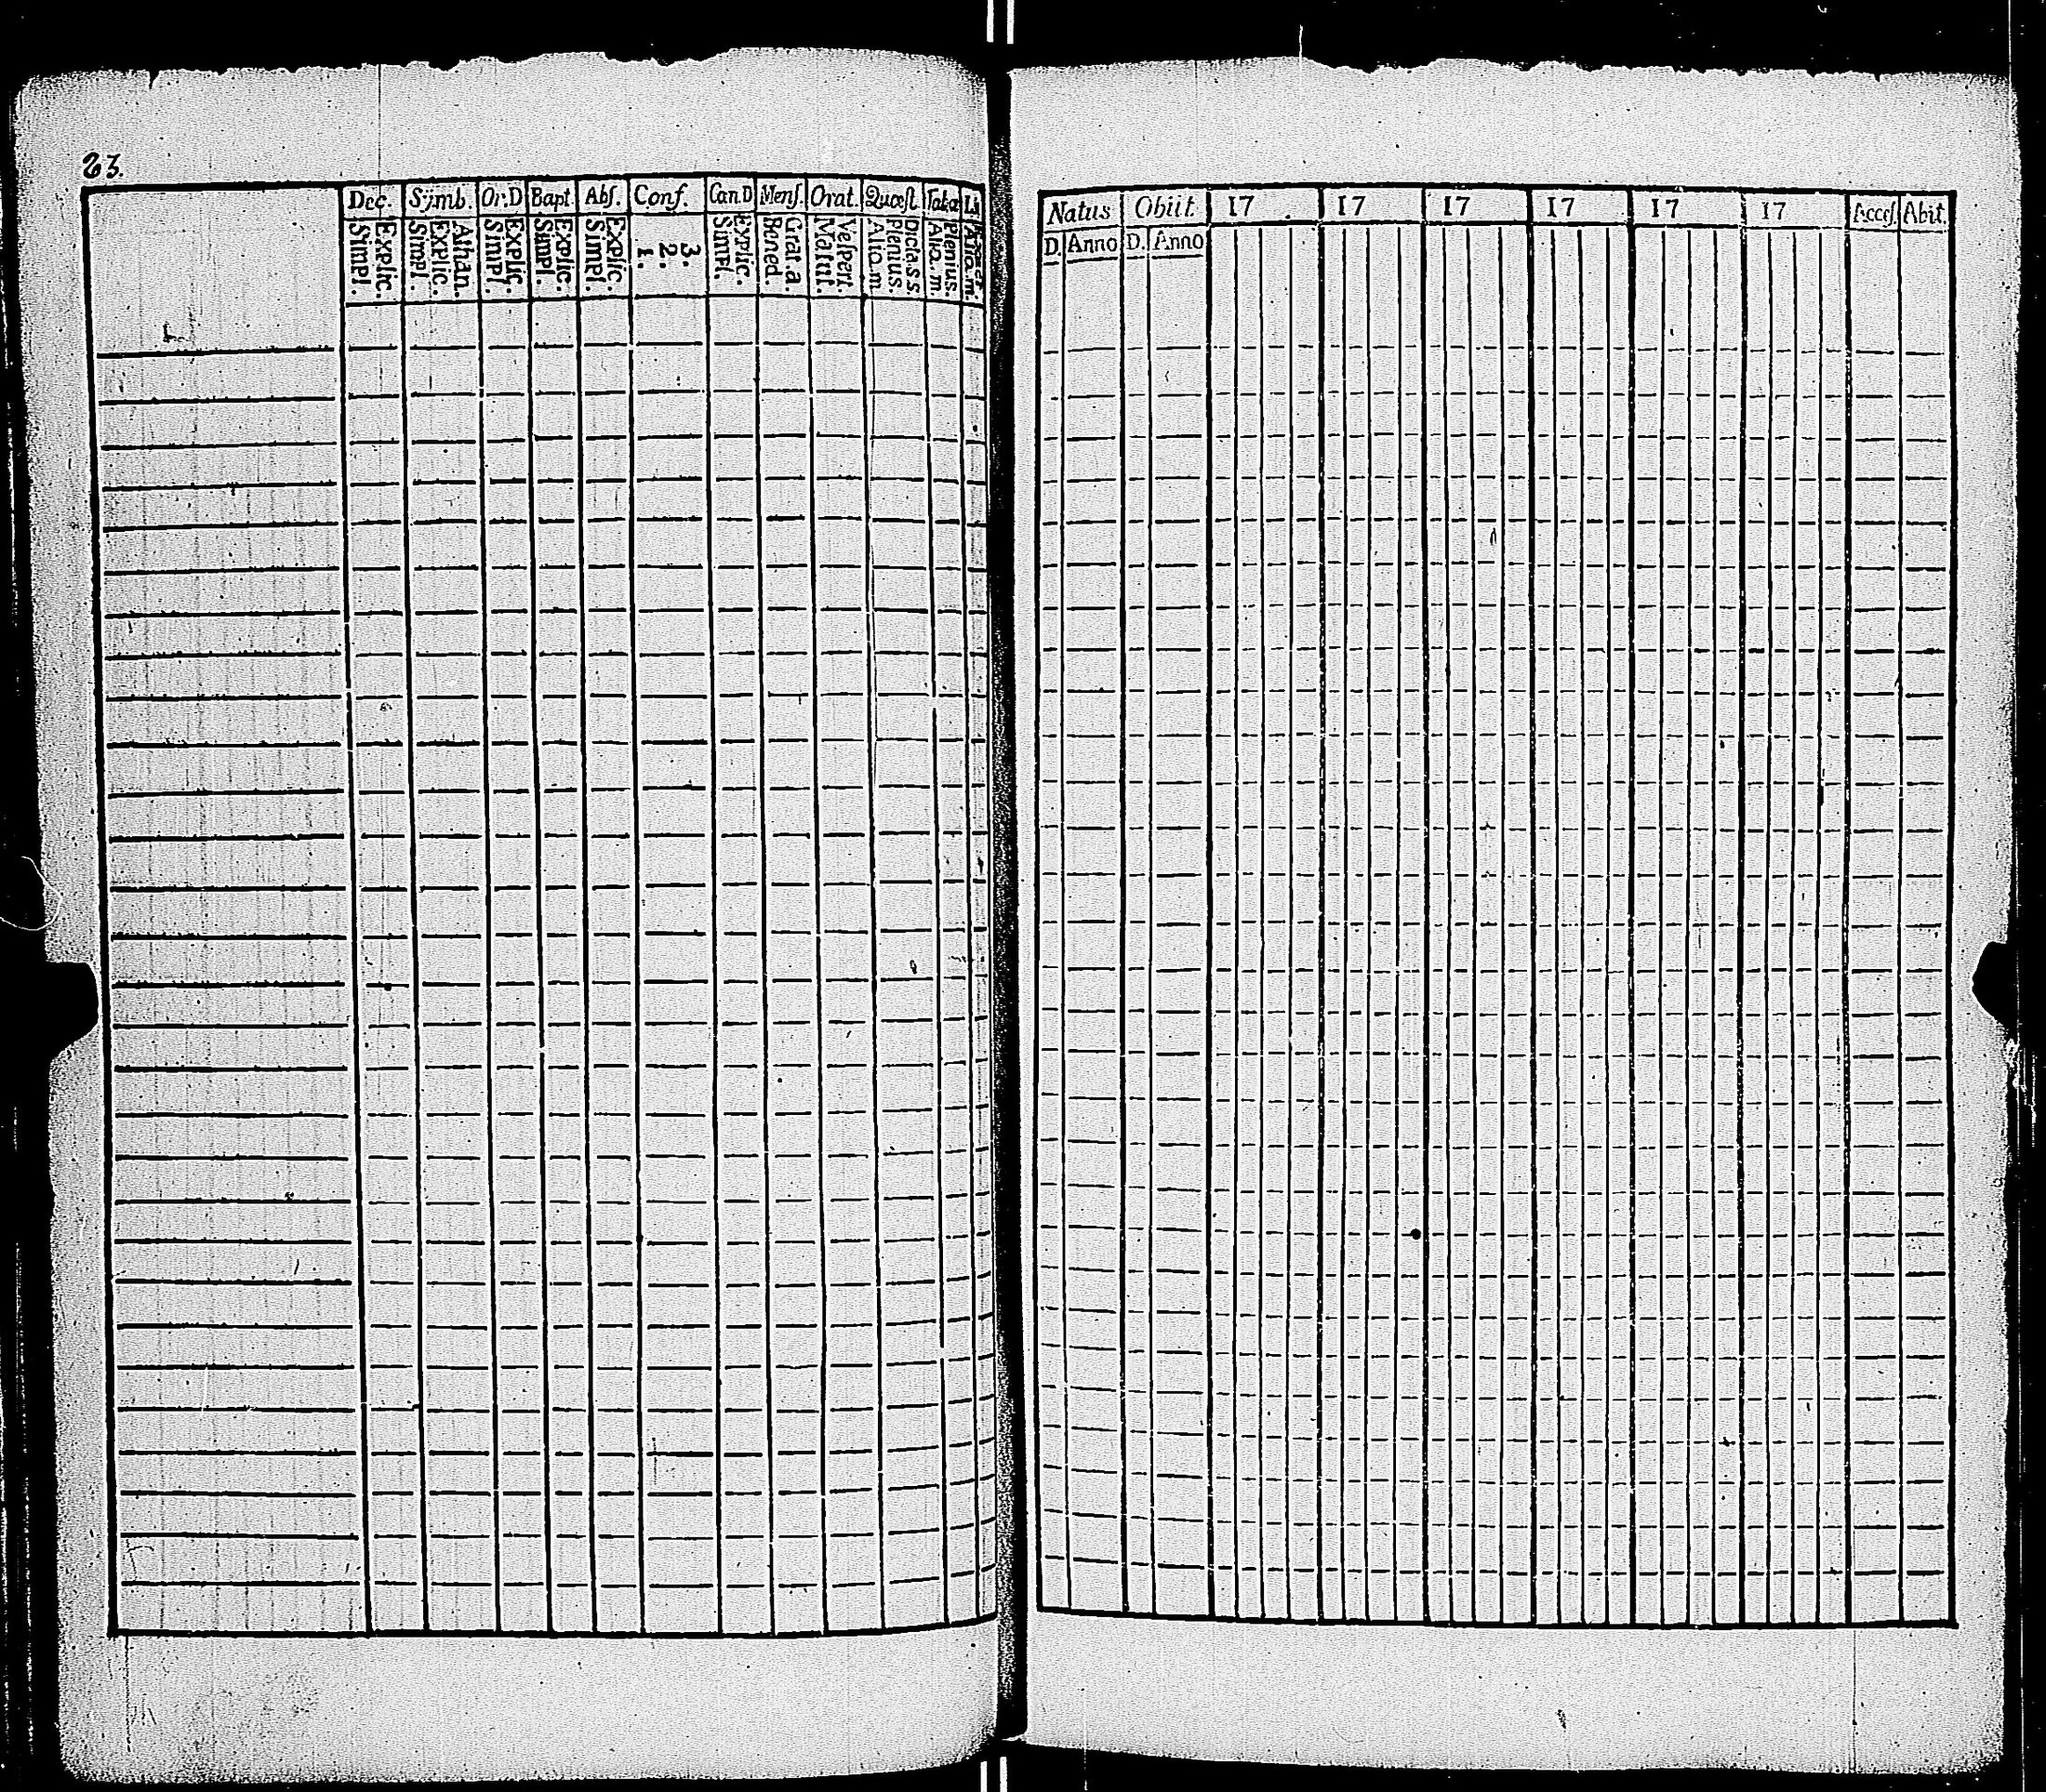 83.
Dec. Symb. Or.D Bapt. Abſ. Conf. Can.D Menſ. Orat. Quæſt. Tab.æ
Explic. Simpl. Athan. Explic. Simpl. Explic. Simpl. Explic. Simpl. Explic. Simpl. 3. 2. 1. Explic. Simpl. Grat.a. Bened. Veſpert. Matut. Dicta.s.s. Plenius. Alio.m Plenius. Alio.m. Alio.m.
Natus Obiit. 17 17 17 17 17 17 Acceſ. Abit.
D. Anno D. Anno